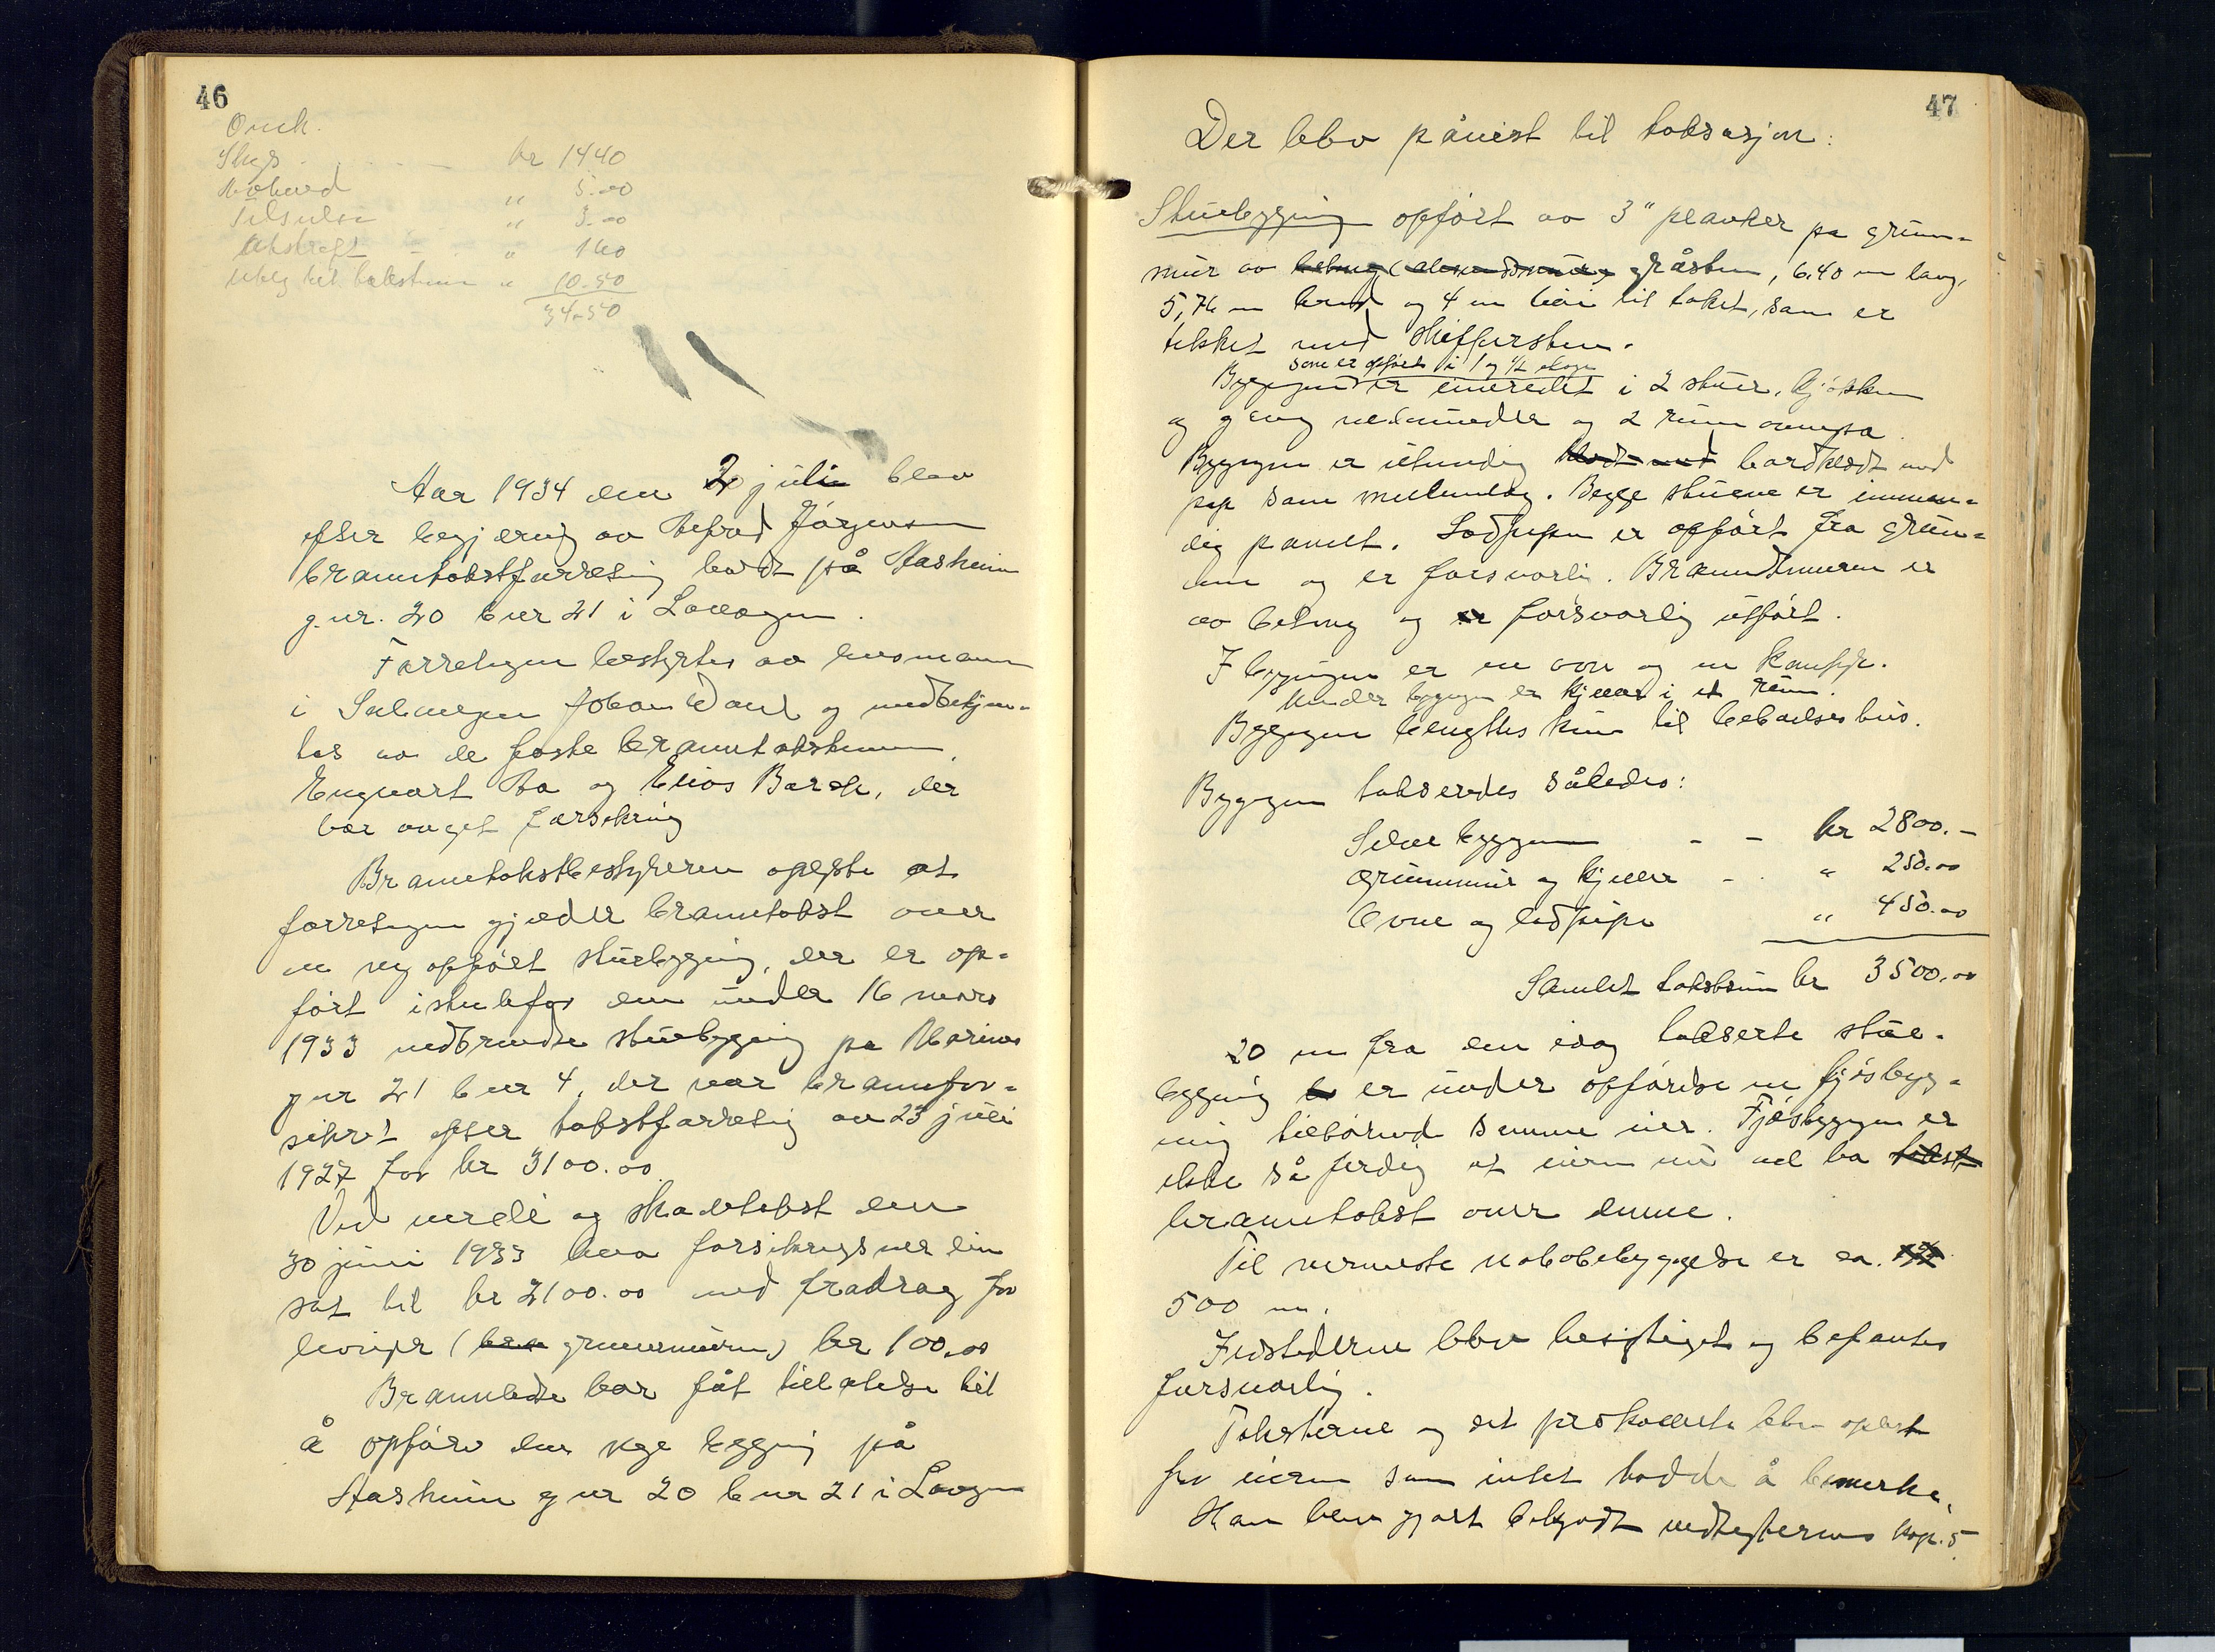 46
Omk.
Skys kr 14.40
" 5.00
" 3.00
" 1.60
Utleg til takstmenn " 10.50
34.50
Aar 1934 den 20 juli blev
efter begjæring av Jørgensen
branntakstforretning holdt på Aasheim
g.nr. 20 b nr 21 i
Forretningen bestyrtes av lensmann
i Johan og medbetjen-
tes av de faste branntakstmenn
Engvart og Elios, der
har avget forsikring
Branntakstbestyreren oplyste at
forretningen gjelder branntakst over
en ny opført stuebygning, der er op-
ført istedefor den under 16 mars
1933 nedbrendte stuebygning på
g nr 21 b nr 4, der var brannfor-
sikret efter takstforretning av 23 juli
1927 for kr 3100.00
Ved verdi og skadetakst den
30 juni 1933 blev forsikringsverdien
sat til kr 3100.00 med fradrag for
levninger ( grunnmuren) kr 100.00
Brannlidte har fåt tillatelse til
å opføre den nye bygning på
Aasheim g nr 20 b nr 21 i
47
Der blev påvist til taksasjon:
Stuebygning opført av 3" planker på grunn-
mur av gråsten, 6,40 m lang,
5,76 m bred og 4 m høi til taket, som er
tekket med skiffersten.
som er opført i 1 og 1/2 etage
Bygningen er innredet i 2 stuer, kjøkken
og gang nedenunder og 2 rum ovenpå.
Bygningen er utvendig bordklædt med
pap som mellemlag. Begge stuene er innven-
dig panelt. Lodpipen er opført fra grun-
nen og er forsvarlig. Brandmuren er
av betong og er forsvarlig utført.
I bygningen er en ovn og en komfyr.
Under bygningen er kjeller i et rum.
Bygningen benyttes kun til beboelseshus.
Bygningen takseredes således:
Selve bygningen - - kr 2800.-
Grunnmur og kjeller - " 250.00
Ovne og lodpipe " 450.00
Samlet takstsum kr 3500.00
20 m fra den idag takserte stue-
bygning er under opførelse en fjøsbyg-
ning tilhørende samme eier. Fjøsbygningen er
ikke så ferdig at eieren nu vil ha
branntakst over denne.
Til nermeste nabobebyggelse er ca.
500 m.
Ildstederne blev besiktiget og befantes
forsvarlig.
Taksterne og det protokollerte blev oplest
for eieren som intet hadde å bemerke.
Han blev gjort bekjendt vedtekternes kap. 5